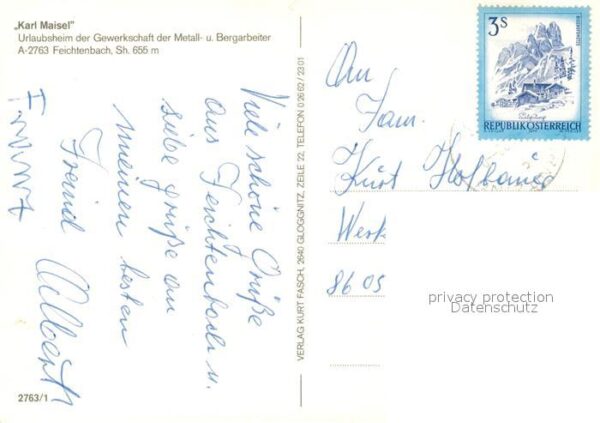 „Karl Maisel”
Urlaubsheim der Gewerkschaft der Metall- u. Bergarbeiter
A-2763 Feichtenbach, Sh. 655 m
Viele schöne Grüße
aus Feichtenbach u.
liebe grüße an
meinen besten
Freind Albert
2763/1
VERLAG KURT FASCH, 2640 GLOGGNITZ, ZEILE 22, TELEFON 0 26 62 / 23 01
3 S
REPUBLIK ÖSTERREICH
An
Fam.
Kurt Hofbauer
Werk
8605
privacy protection
Datenschutz